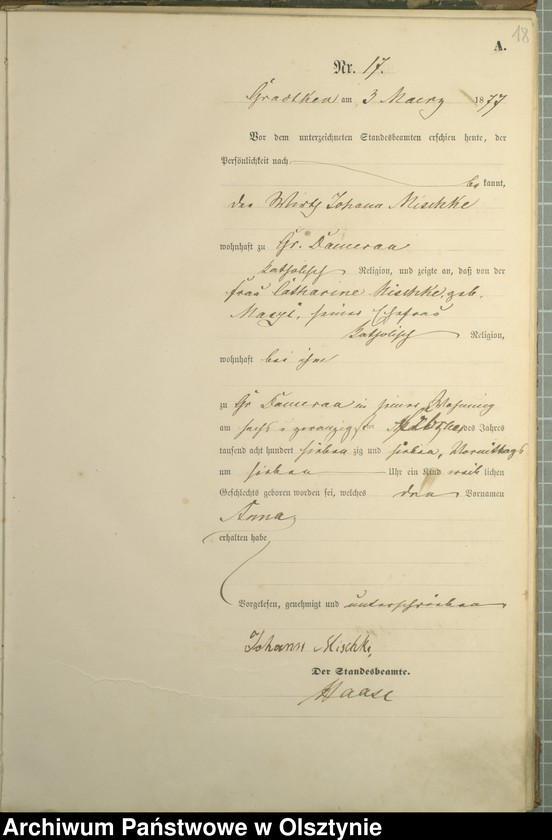 18
A.
Nr. 17.
Gradtken am 3 Maerz 1877
Vor dem unterzeichneten Standesbeamten erschien heute, der
Persönlichkeit nach
be kannt,
der Wirth Johann Mischke
wohnhaft zu Gr. Damerau
katholisch Religion, und zeigte an, daß von der
Frau Catharine Mischke, geb.
seiner Ehefrau
katholisch Religion,
wohnhaft bei ihm
zu Gr Damerau in seiner Wohnung
am sechs u zwanzigst Februar des Jahres
tausend acht hundert sieben zig und sieben, Vormittags
um sieben Uhr ein Kind weib lichen
Geschlechts geboren worden sei, welches den Vornamen
Anna
erhalten habe
Vorgelesen, genehmigt und unterschrieben
Johann Mischke
Der Standesbeamte.
Haase
Archiwum Państwowe w Olsztynie